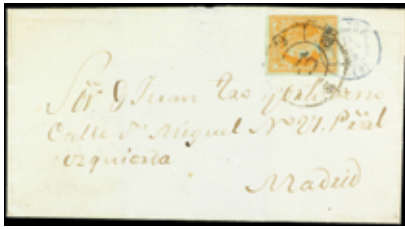 Sor. D Juan
Calle Sn. Miguel No 27. Pral
izquierda
Madrid